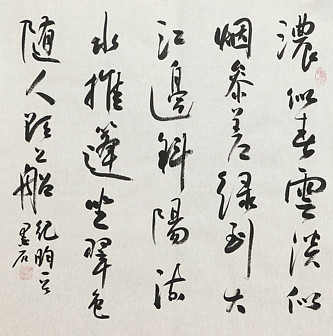 濃似春雲淡似
烟参差绿到大
江邊斜陽流
水推篷坐翠色
随人欲上船
纪昀
墨石